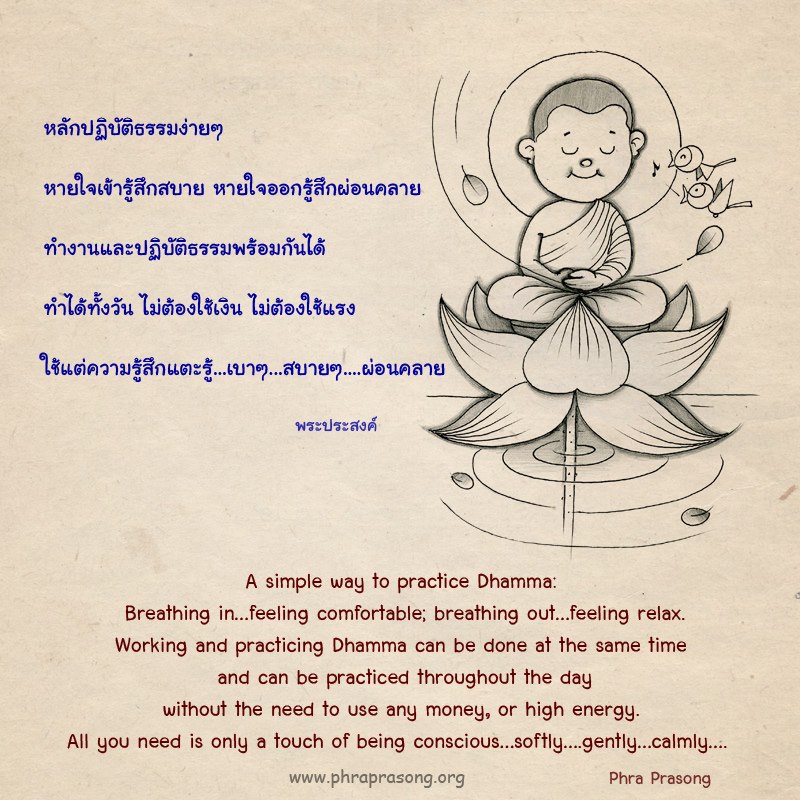 หลักปฏิบัติธรรมง่ายๆ
หายใจเข้ารู้สึกสบาย หายใจออกรู้สึกผ่อนคลาย
ทำงานและปฏิบัติธรรมพร้อมกันได้
ทำได้ทั้งวัน ไม่ต้องใช้เงิน ไม่ต้องใช้แรง
ใช้แต่ความรู้สึกแตะรู้...เบาๆ...สบายๆ....ผ่อนคลาย
พระประสงค์
A simple way to practice Dhamma:
Breathing in...feeling comfortable; breathing out...feeling relax.
Working and practicing Dhamma can be done at the same time
and can be practiced throughout the day
without the need to use any money, or high energy.
All you need is only a touch of being conscious...softly....gently...calmly....
www.phraprasong.org
Phra Prasong